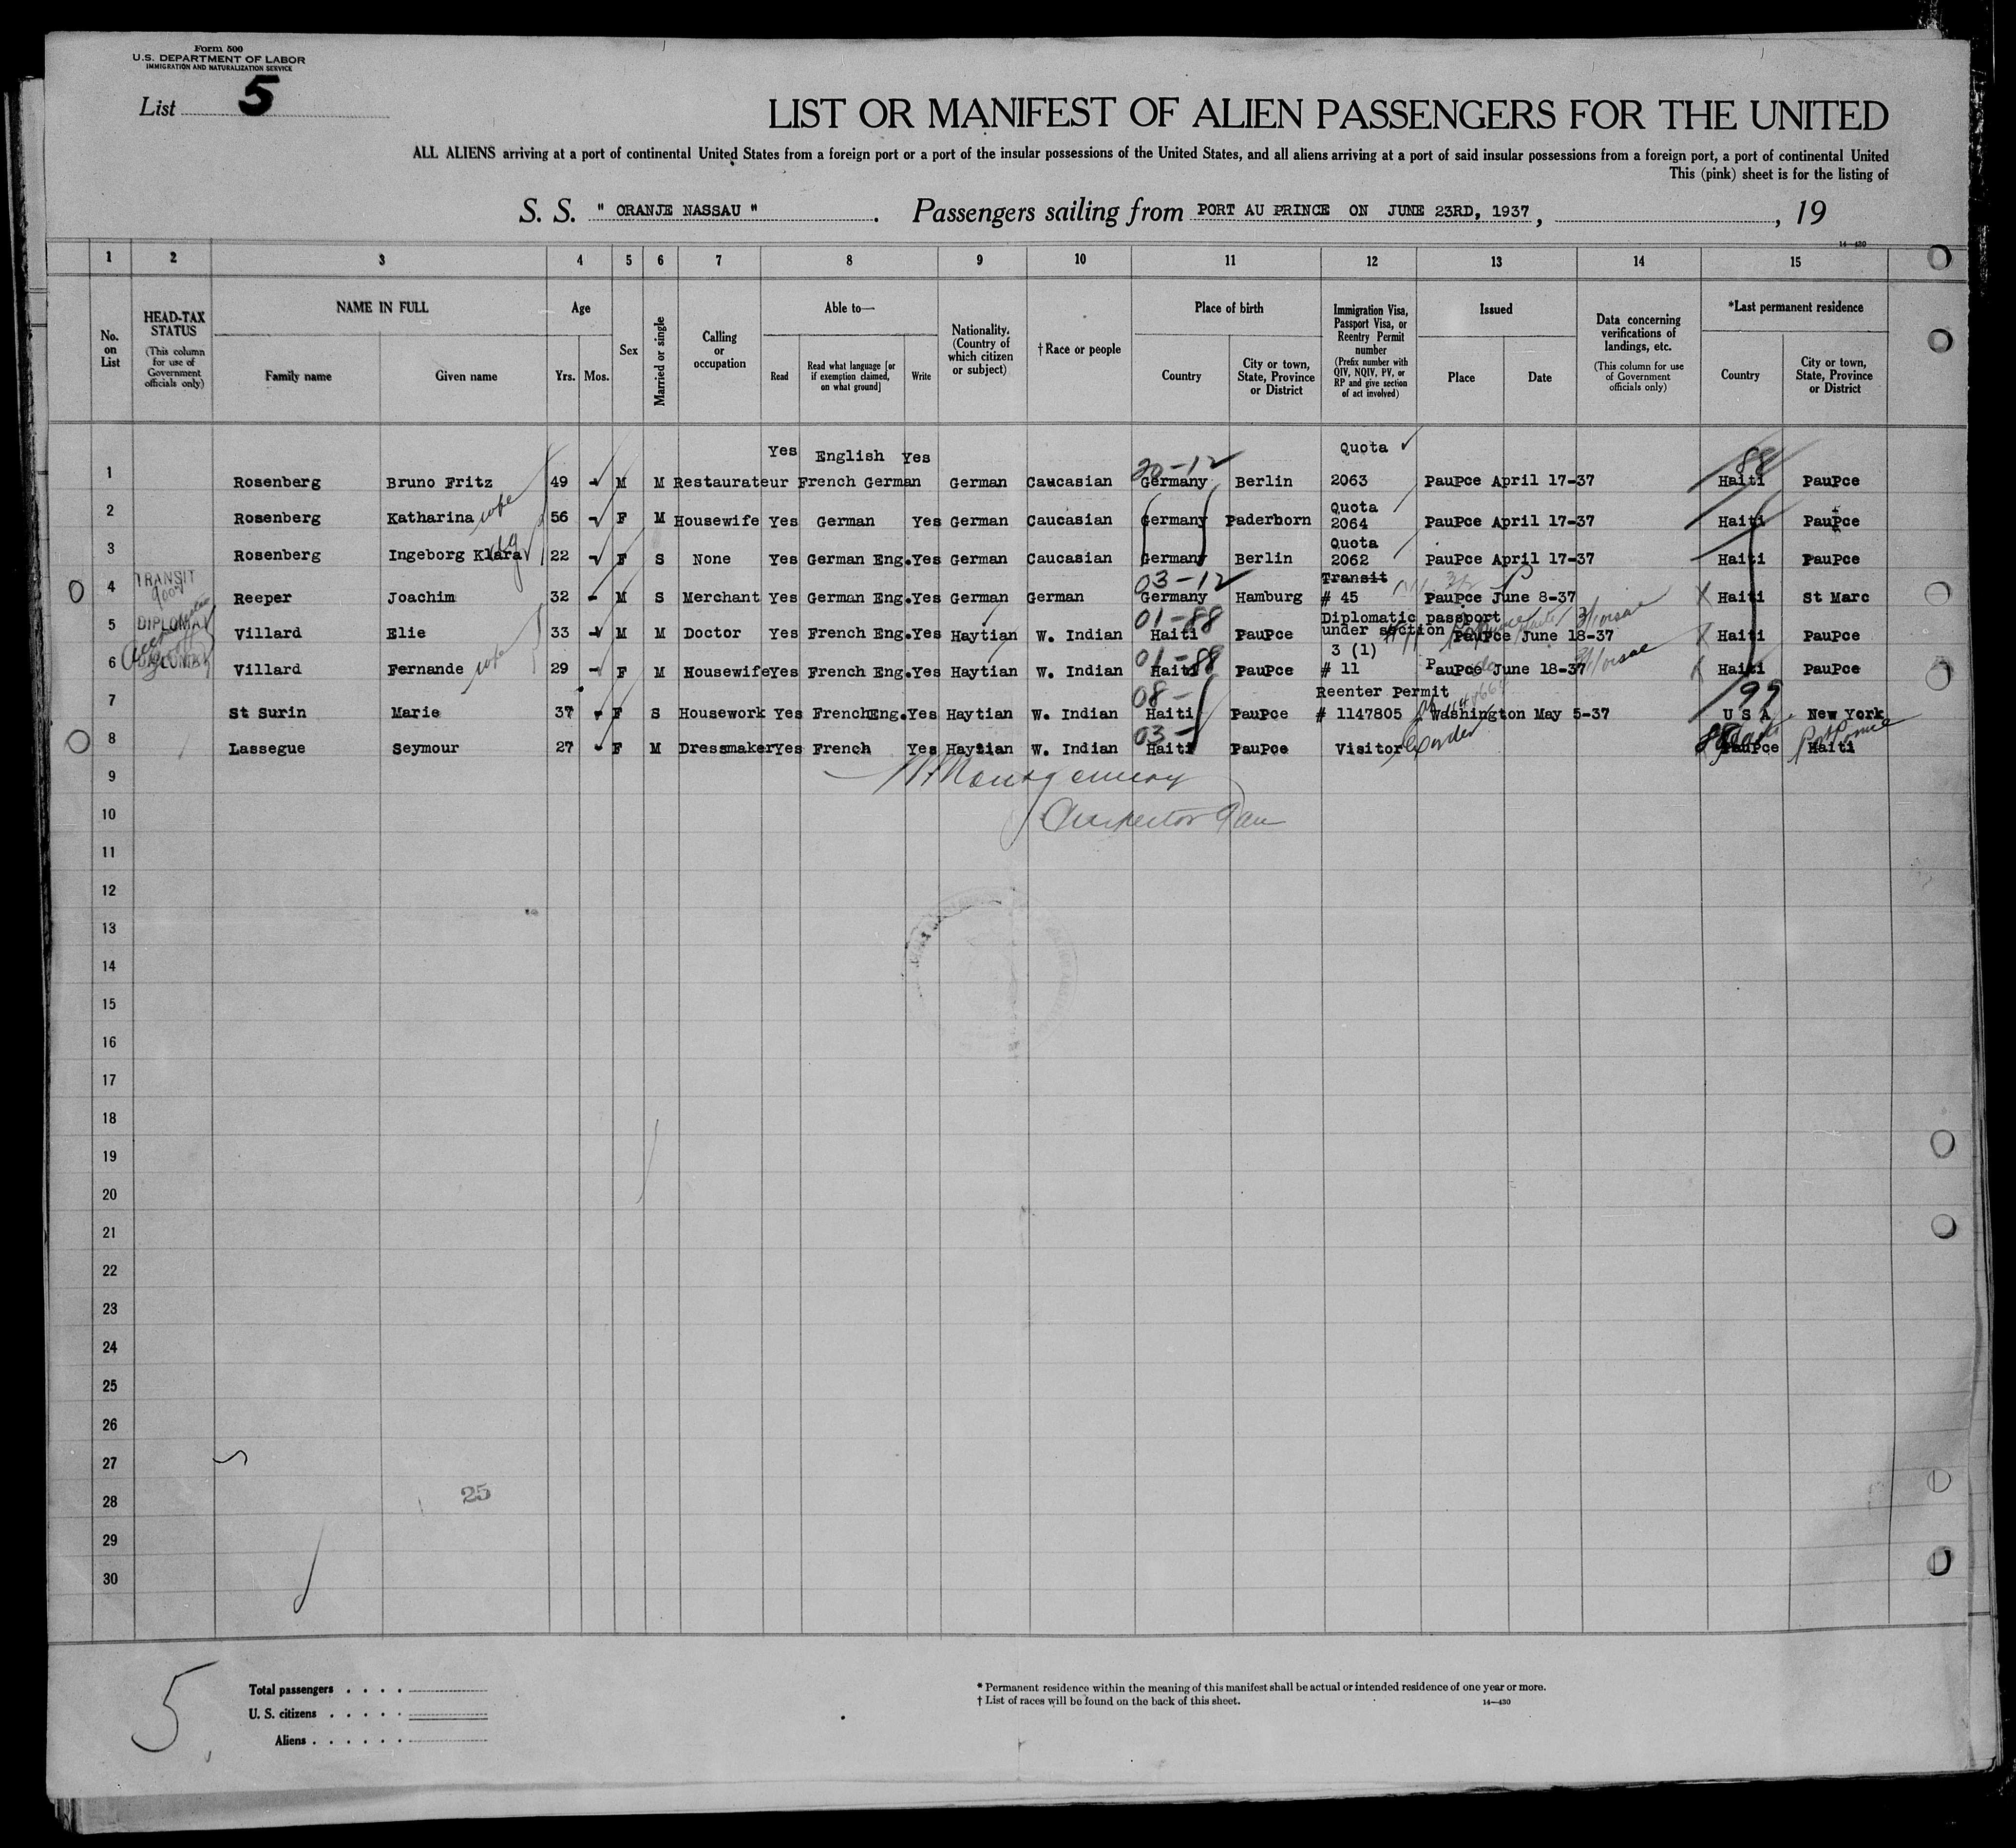 Form 500
U.S. DEPARTMENT OF LABOR
IMMIGRATION AND NATURALIZATION SERVICE
List 5
LIST OR MANIFEST OF ALIEN PASSENGERS FOR THE UNITED
ALL ALIENS arriving at a port of continental United States from a foreign port or a port of the insular possessions of the United States, and all aliens arriving at a port of said insular possessions from a foreign port, a port of continental United
This (pink) sheet is for the listing of
S. S. " ORANJE NASSAU ". Passengers sailing from PORT AU PRINCE ON JUNE 23RD, 1937, , 19
14—430
1 2 3 4 5 6 7 8 9 10 11 12 13 14 15
No. on List
HEAD-TAX STATUS
(This column for use of Government officials only)
NAME IN FULL
Family name Given name
Age
Yrs. Mos.
Sex
Married or single
Calling or occupation
Able to—
Read
Read what language [or if exemption claimed, on what ground]
Write
Nationality. (Country of which citizen or subject)
† Race or people
Place of birth
Country
City or town, State, Province or District
Immigration Visa, Passport Visa, or Reentry Permit number
(Prefix number with QIV, NQIV, PV, or RP and give section of act involved)
Issued
Place Date
Data concerning verifications of landings, etc.
(This column for use of Government officials only)
*Last permanent residence
Country
City or town, State, Province or District
Yes English Yes Quota
20-12 88
1 Rosenberg Bruno Fritz 49 M M Restaurateur French German German Caucasian Germany Berlin 2063 PauPce April 17-37 Haiti PauPce
Quota
2 Rosenberg Katharina wife 56 F M Housewife Yes German Yes German Caucasian Germany Paderborn 2064 PauPce April 17-37 Haiti PauPce
Quota
3 Rosenberg Ingeborg Klara 22 F S None Yes German Eng. Yes German Caucasian Germany Berlin 2062 PauPce April 17-37 Haiti PauPce
TRANSIT 03-12 Transit
4 Reeper Joachim 32 M S Merchant Yes German Eng. Yes German German Germany Hamburg # 45 PauPce June 8-37 Haiti St Marc
DIPLOMAT 01-88 Diplomatic passport
5 Villard Elie 33 M M Doctor Yes French Eng. Yes Haytian W. Indian Haiti PauPce under section PauPce June 18-37 Haiti PauPce
DIPLOMAT 01-88 3 (1)
6 Villard Fernande wife 29 F M Housewife Yes French Eng. Yes Haytian W. Indian Haiti PauPce # 11 PauPce June 18-37 Haiti PauPce
08- Reenter Permit 99
7 St Surin Marie 37 F S Housework Yes French Eng. Yes Haytian W. Indian Haiti PauPce # 1147805 Washington May 5-37 U S A New York
03- 88
8 Lassegue Seymour 27 F M Dressmaker Yes French Yes Haytian W. Indian Haiti PauPce Visitor PauPce Haiti
9
Montgomery
10
11
12
13
14
15
16
17
18
19
20
21
22
23
24
25
26
27
28
25
29
30
5
Total passengers . . . .
U. S. citizens . . . . .
Aliens . . . . . .
* Permanent residence within the meaning of this manifest shall be actual or intended residence of one year or more.
† List of races will be found on the back of this sheet.
14—430